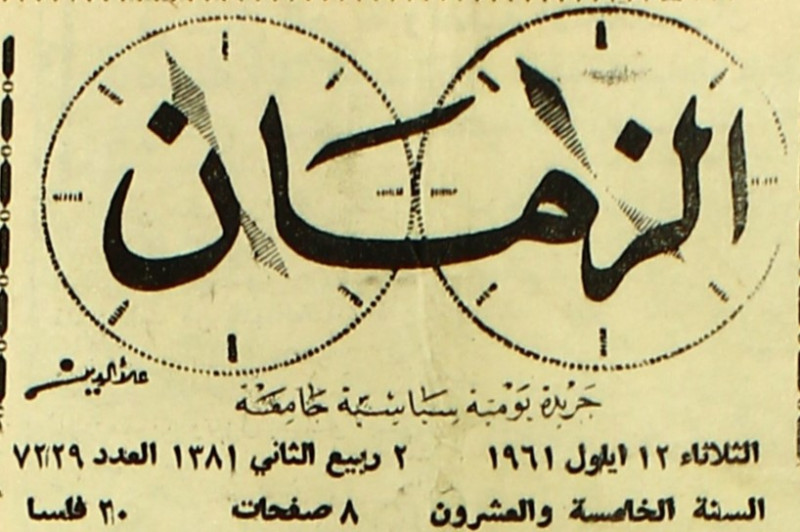 الزمان
علاء الدين
جريدة يومية سياسية جامعة
الثلاثاء ١٢ ايلول ١٩٦١ ٢ ربيع الثاني ١٣٨١ العدد ٧٢٢٩
السنة الخامسة والعشرون ٨ صفحات ٢٠ فلسا